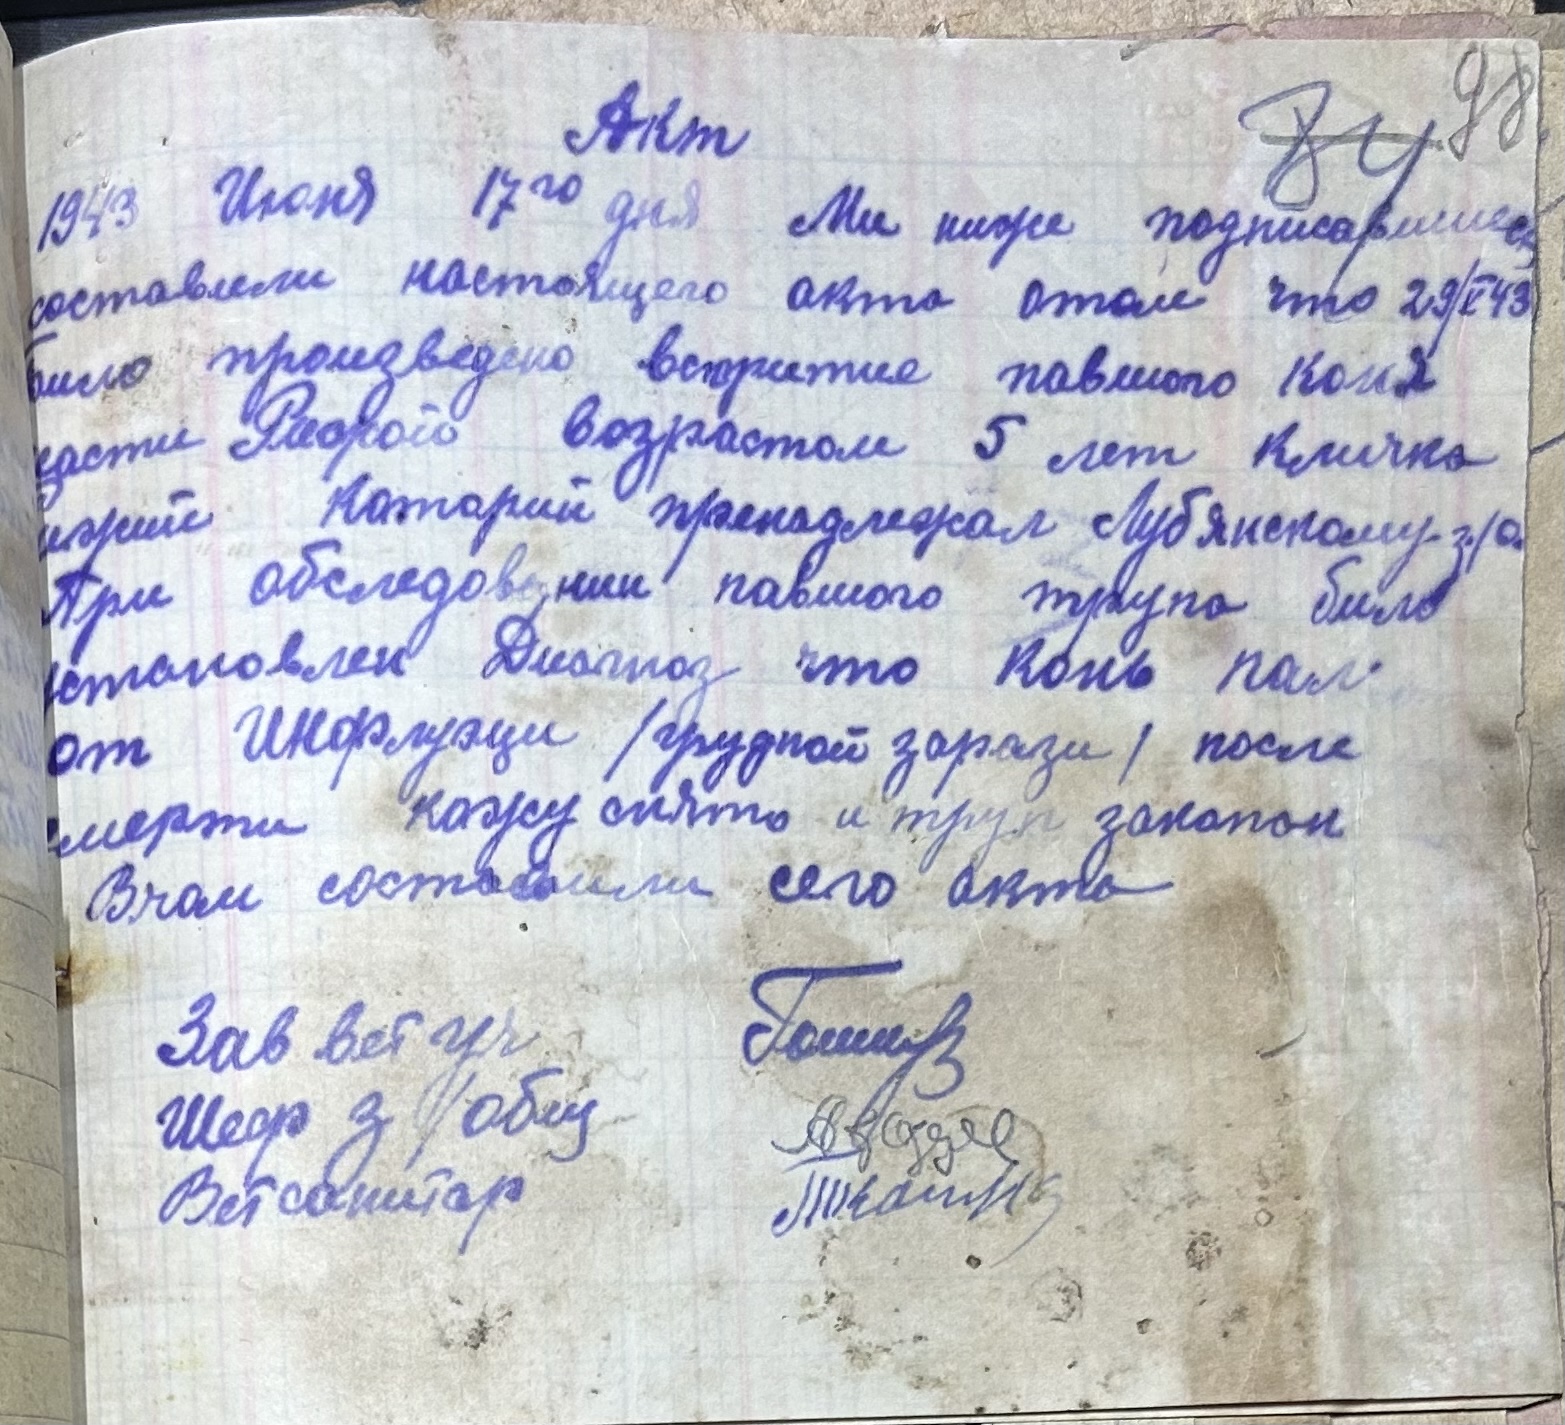 98
Акт
1943 Июня 17го дня Ми ниже подписавшиеся
составили настоящего акта отом что 29/V 43
било произведено вскритие павшого коня
масти Рыжой возрастом 5 лет кличка
который пренадлежал Лубянскому з/о.
При обследовании павшого трупа било
установлен Диагноз что конь пал
от Инфлуэци /грудной зарази/ после
смерти кожу снято и труп закопан
Вчом составили сего акта
Зав вет уч
Шеф з/общ
Ветсанитар